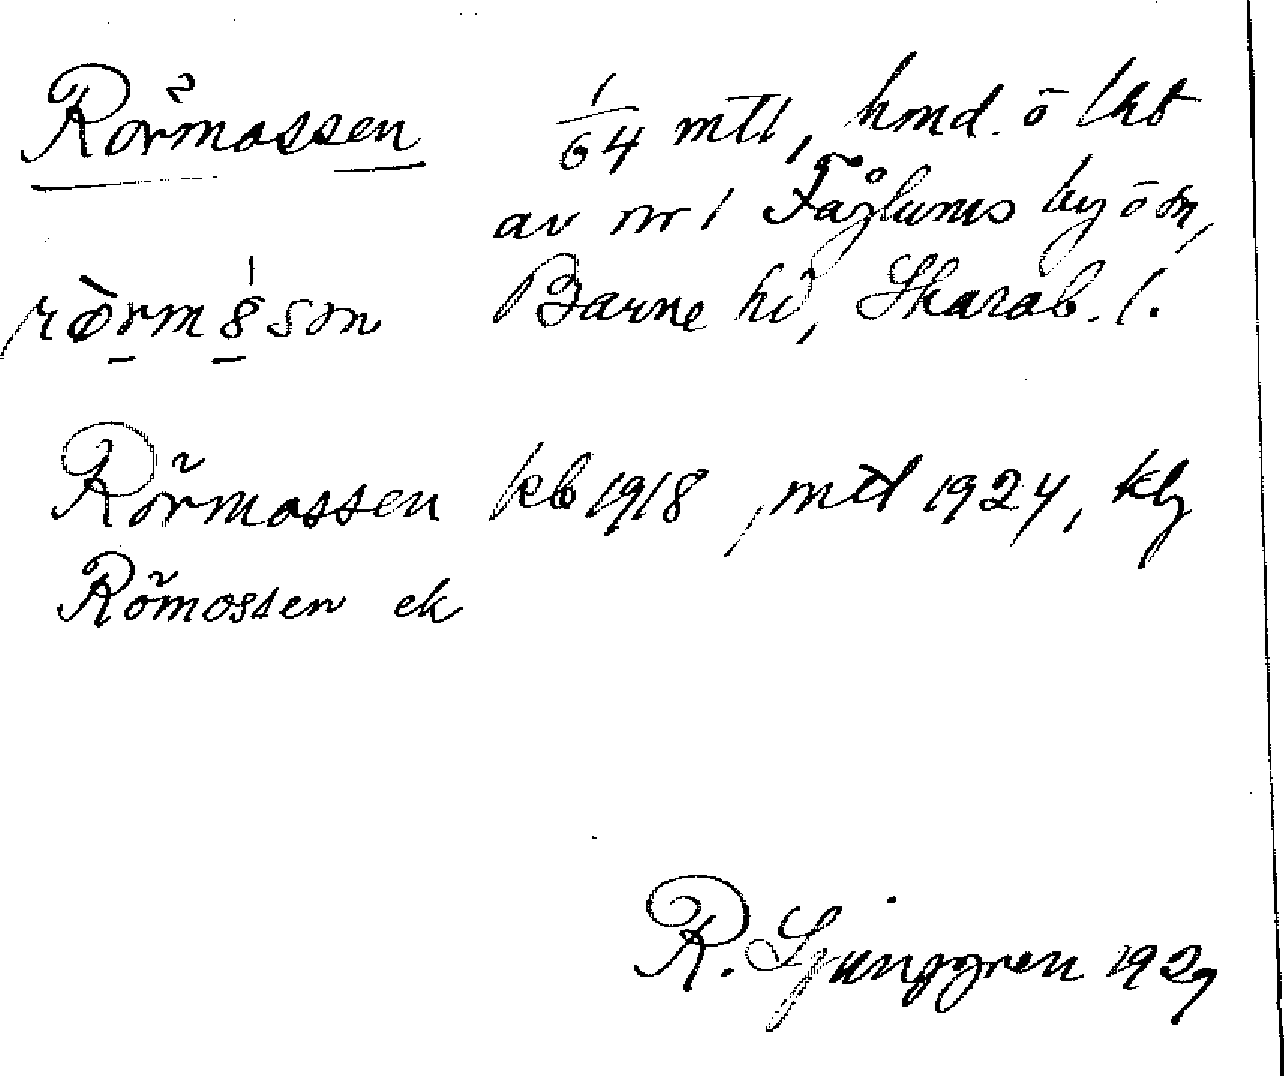 Rörmossen 1/64 mtl, hmd. o lht
av nr 1 Fåglums by o sn,
Barne hd, Skarab. l.
Rörmossen kb 1918, mtl 1924, kbg
Römossen ek
R. Ljunggren 1929